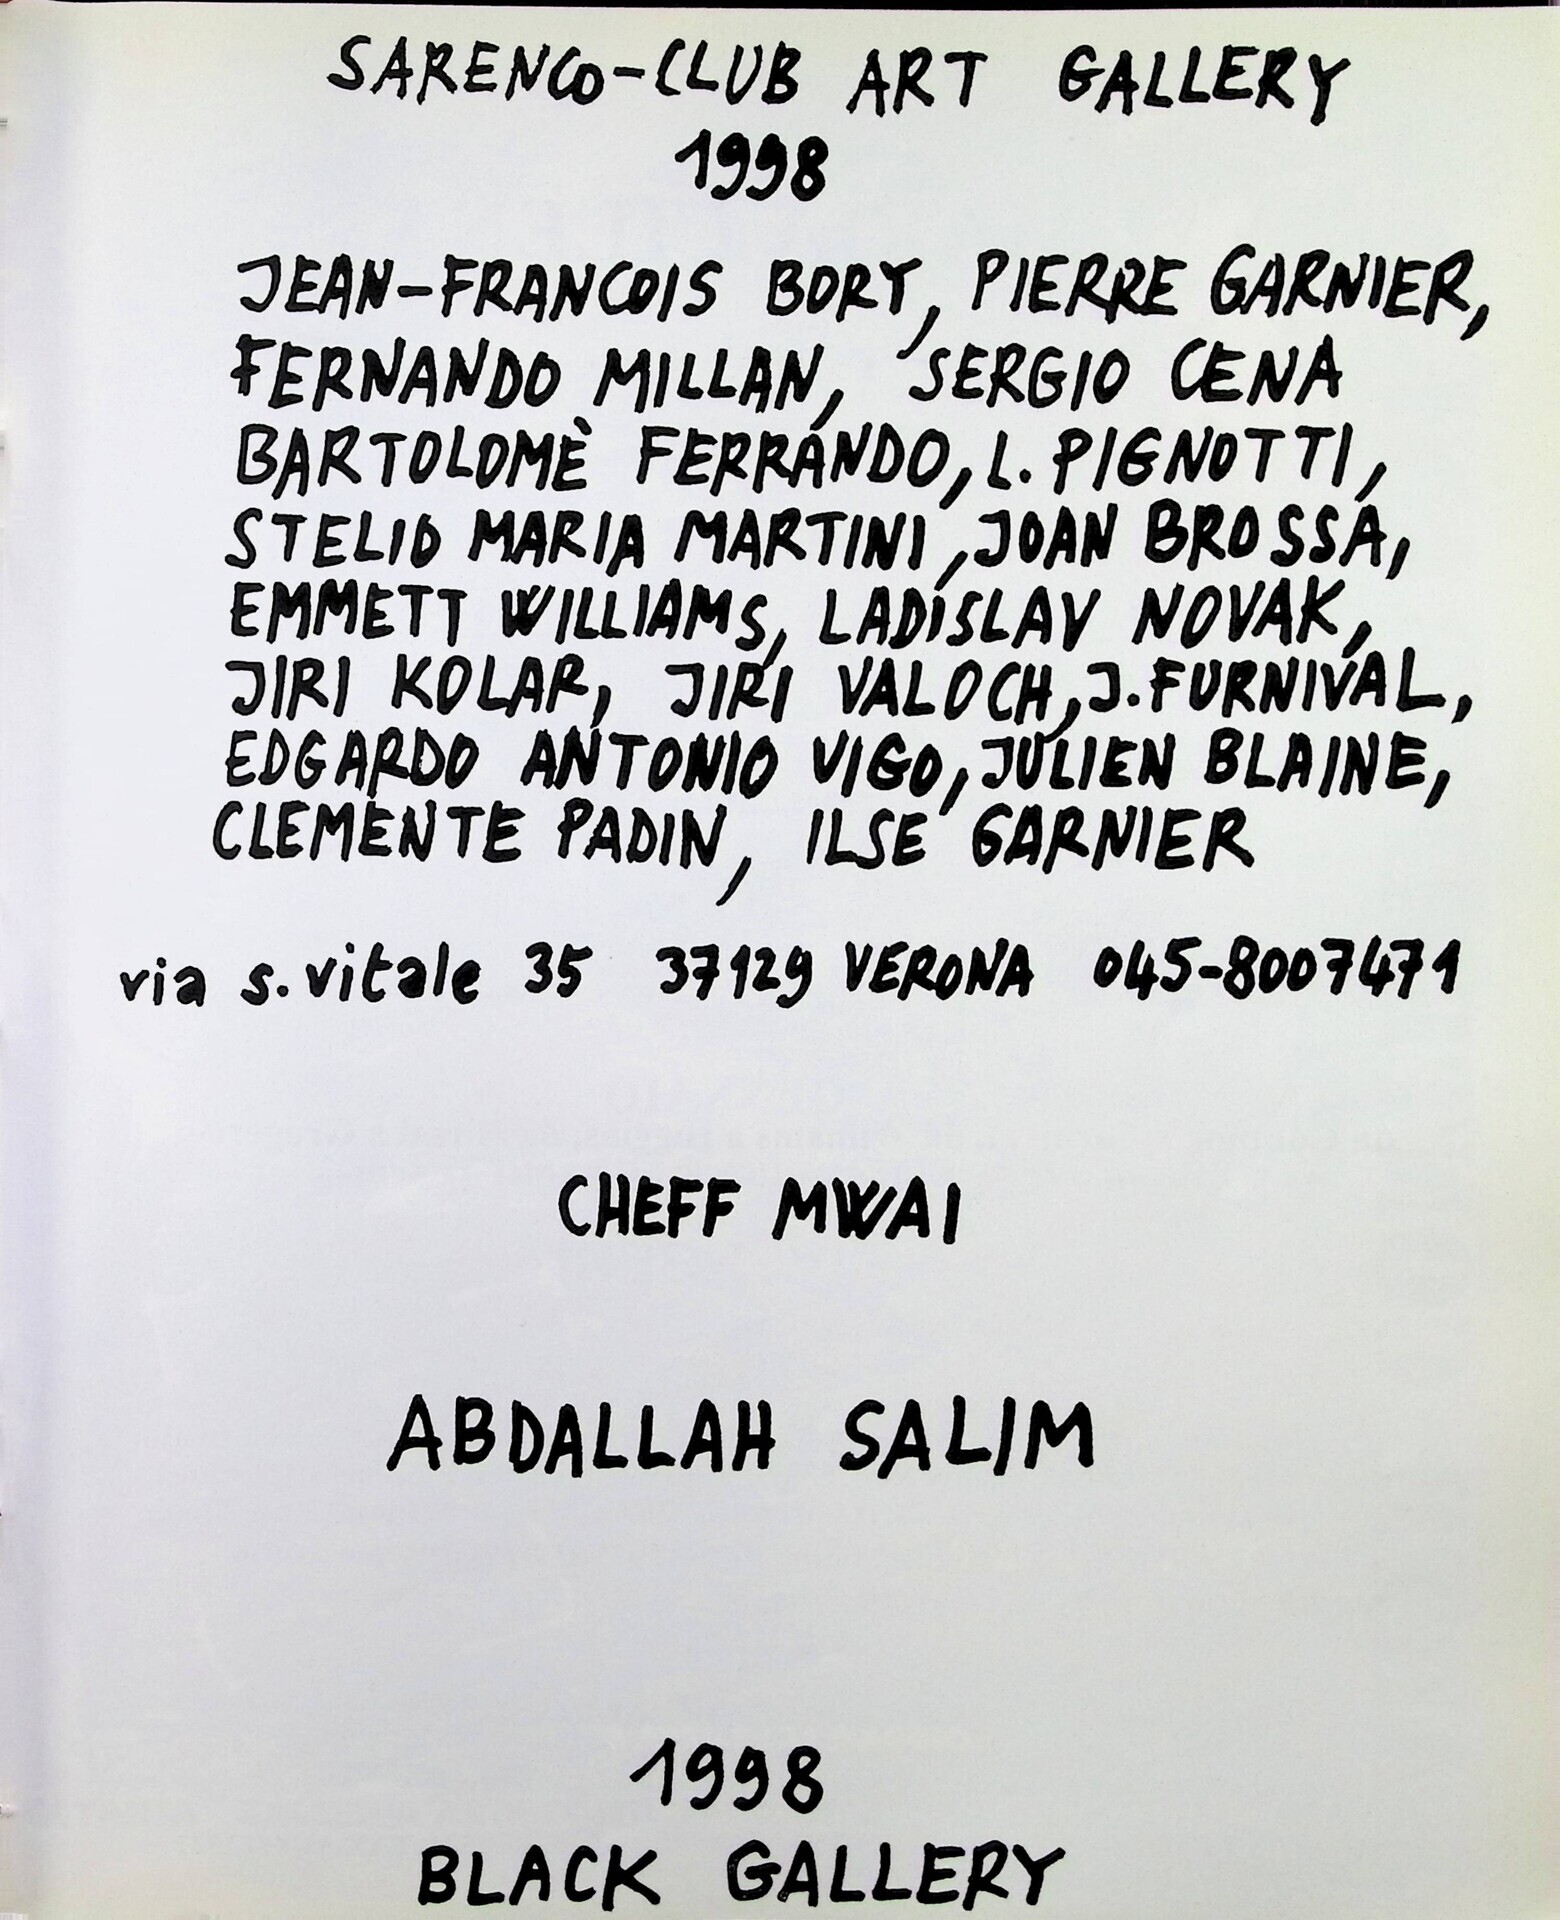 SARENCO-CLUB ART GALLERY
1998
JEAN-FRANCOIS BORY, PIERRE GARNIER,
FERNANDO MILLAN, SERGIO CENA
BARTOLOMÈ FERRANDO, L. PIGNOTTI,
STELIO MARIA MARTINI, JOAN BROSSA,
EMMETT WILLIAMS, LADISLAV NOVAK,
JIRI KOLAR, JIRI VALOCH, J. FURNIVAL,
EDGARDO ANTONIO VIGO, JULIEN BLAINE,
CLEMENTE PADIN, ILSE GARNIER
via s. vitale 35 37129 VERONA 045-8007471
CHEFF MWAI
ABDALLAH SALIM
1998
BLACK GALLERY